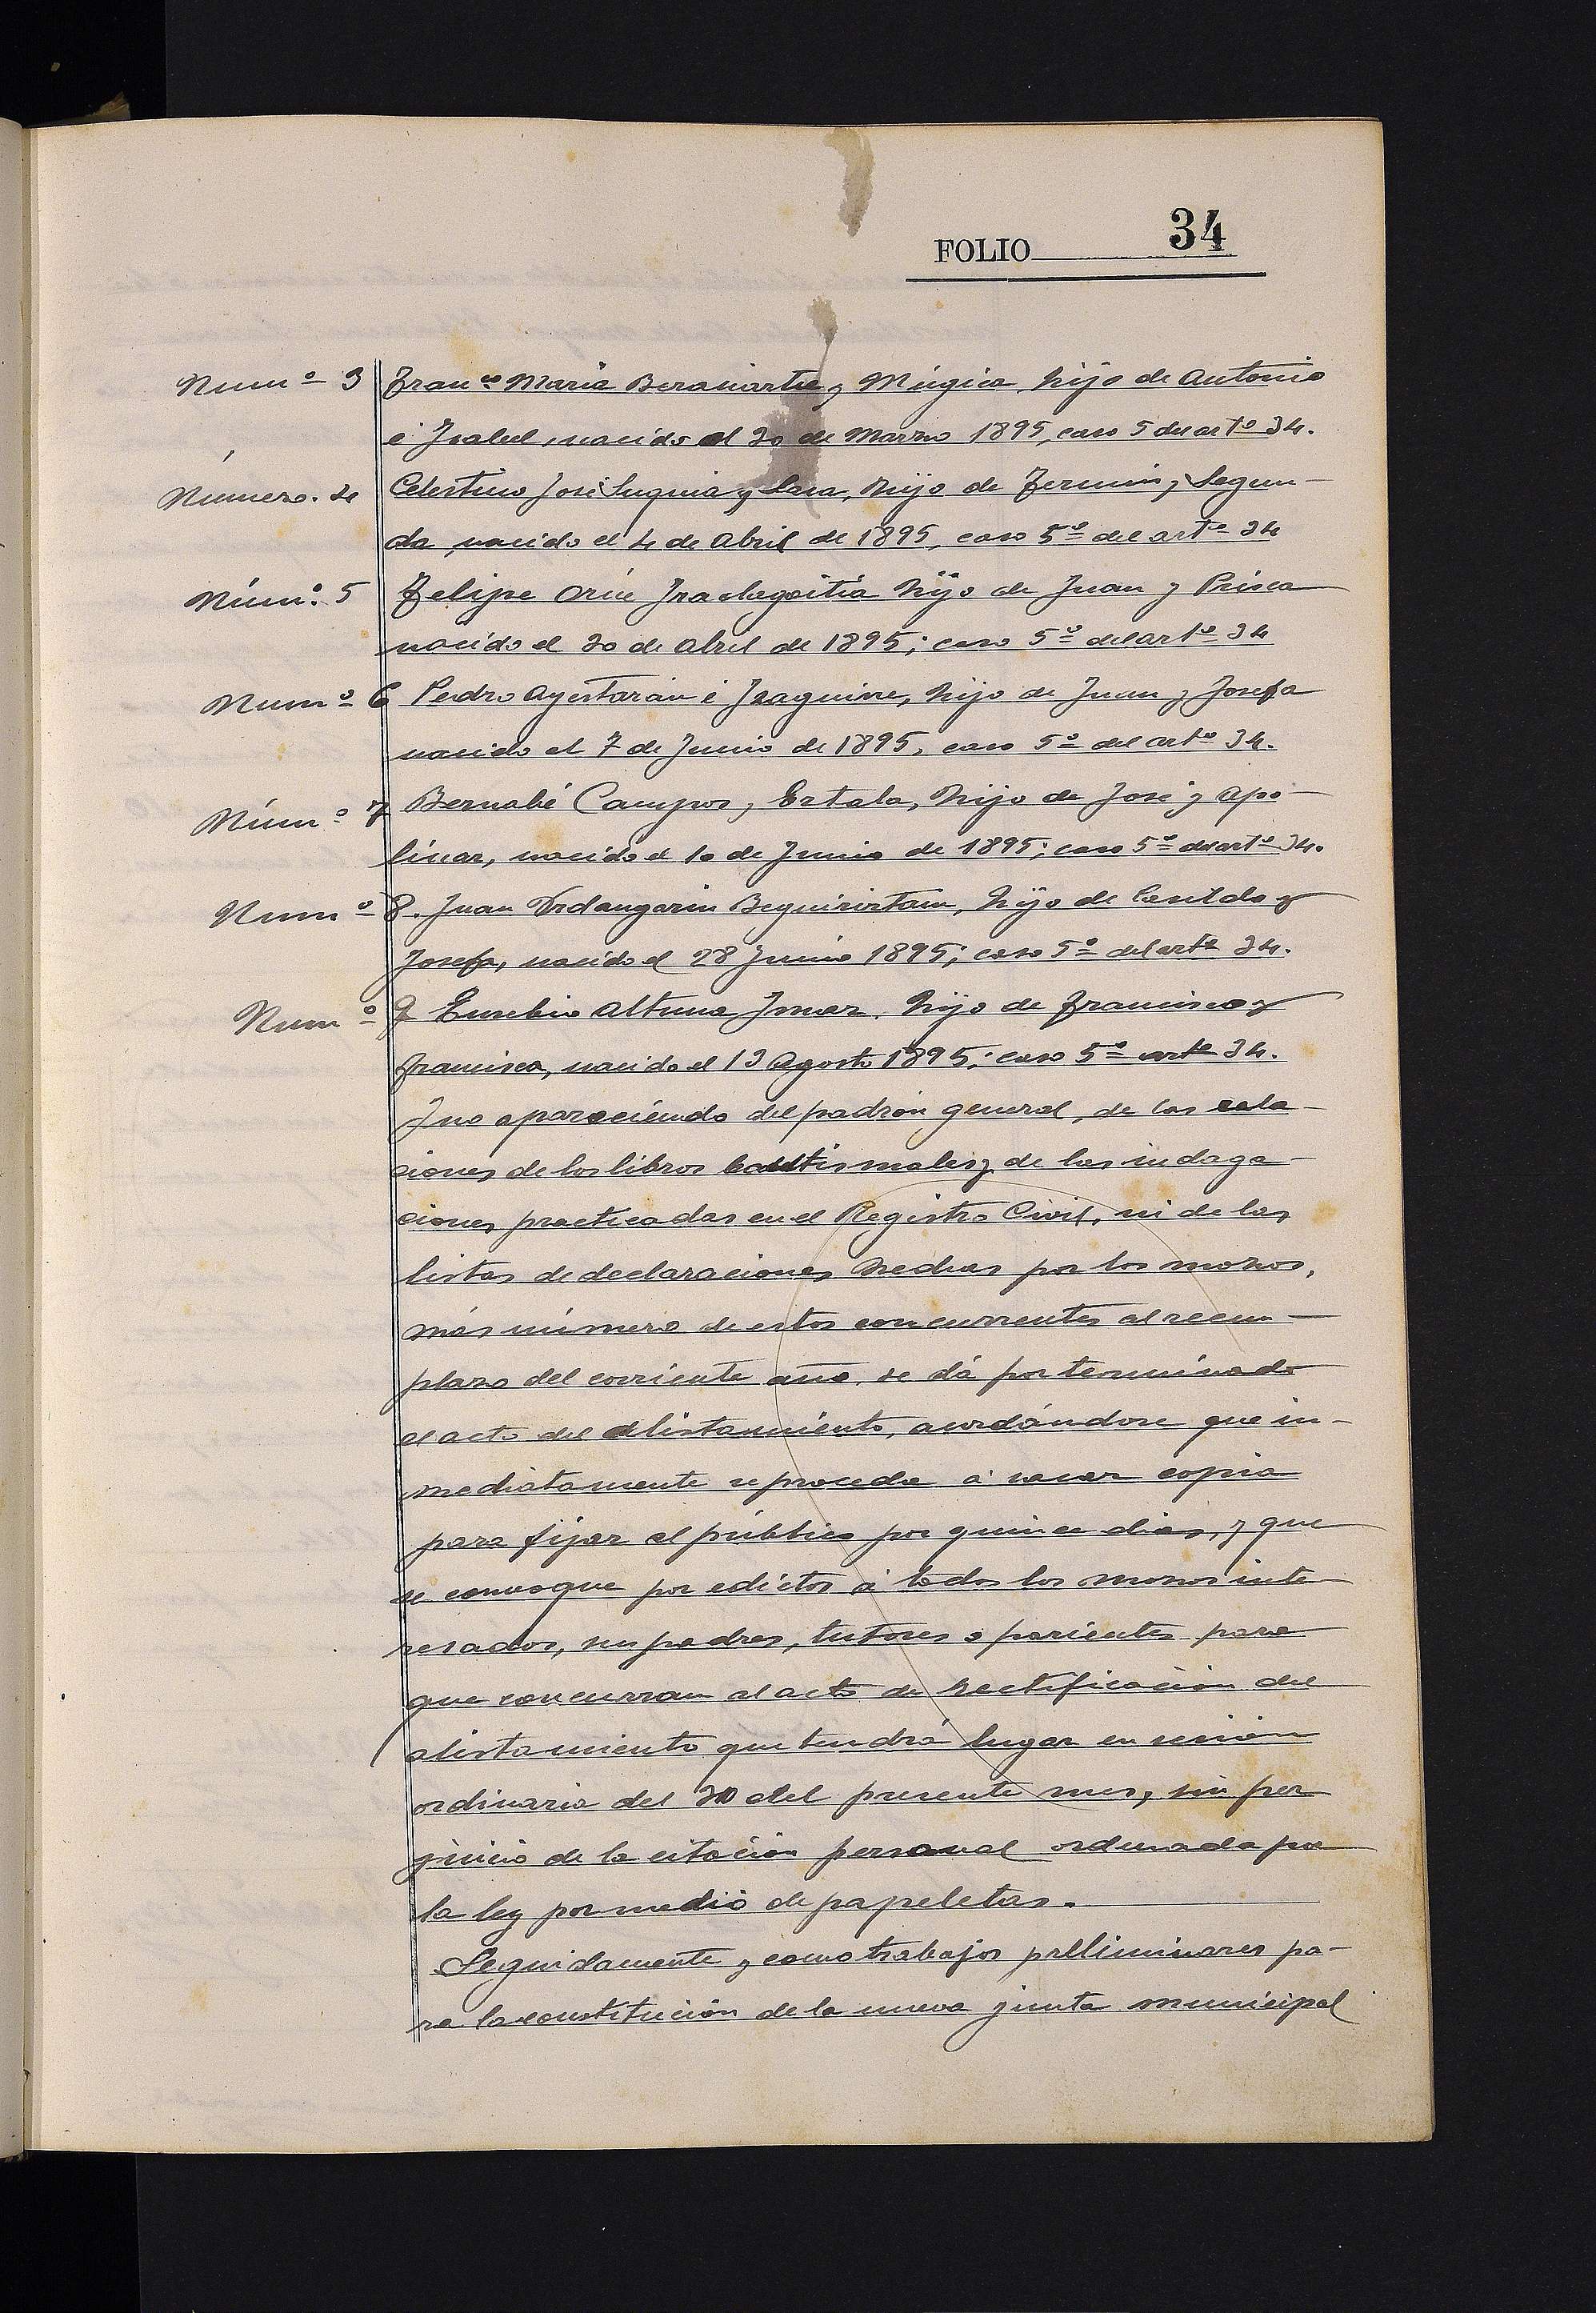 FOLIO 34
Num.º 3 Fran.co Maria Berasiartu y Múgica, hijo de Antonio
é Isabel, nacido el 30 de Marzo 1895, caso 5 del art.º 34.
Número. 4 Celestino José Suquia y Lasa, hijo de Fermin y Segun-
da, nacido el 4 de Abril de 1895, caso 5.º del art.º 34
Núm.º 5 Felipe Orúe Iraolagoitia hijo de Juan y Prisca
nacido el 30 de Abril de 1895; caso 5.º del art.º 34
Num.º 6 Pedro Ayestarán é Izaguirre, hijo de Juan y Josefa
nacido el 7 de Junio de 1895, caso 5.º del art.º 34.
Núm.º 7 Bernabé Campos, Ertala, hijo de José y Apo-
linar, nacido el 10 de Junio de 1895; caso 5.º del art.º 34.
Num.º 8. Juan Urdangarin Beguiristain, hijo de Casildo y
Josefa, nacido el 28 Junio 1895; caso 5.º del art.º 34.
Num.º 9 Eusebio Altuna, hijo de Francisco y
Francisca, nacido el 13 Agosto 1895; caso 5.º art.º 34.
Y no apareciendo del padrón general, de las rela-
ciones de los libros bautismales y de las indaga-
ciones practicadas en el Registro Civil, ni de las
listas de declaraciones hechas por los mozos,
más número de estos concurrentes al reem-
plazo del corriente año, se dá por terminado
el acto del alistamiento, acordándose que in-
mediatamente se proceda á sacar copia
para fijar al público por quince dias, y que
se convoque por edictos á todos los mozos inte
resados, sus padres, tutores o parientes para
que concurran al acto de rectificación del
alistamiento que tendrá lugar en sesión
ordinaria del 30 del presente mes, sin per
juicio de la citación personal ordenada por
la ley por medio de papeletas.
Seguidamente y como trabajos preliminares pa-
ra la constitución de la nueva junta municipal